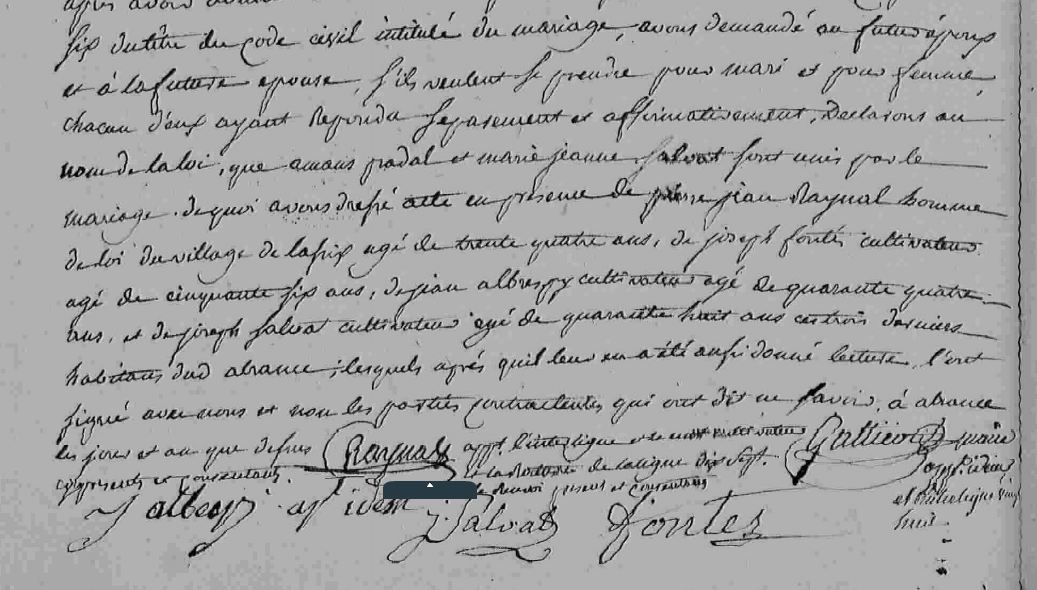 après avoir
six du titre du code civil intitulé du mariage, avons demandé au futur époux
et à la future epouse, s'ils veulent se prendre pour mari et pour femme,
chacun d'eux ayant repondu separement et affirmativement, Declarons au
nom de la loi, que amans padal et marie jeanne salvat sont unis par le
mariage. de quoi avons dressé acte en presence de pierre jean Raynal homme
de loi du village de agé de trente quatre ans, de joseph fontés cultivateur
agé de cinquante six ans, de jean albespy cultivateur agé de quarante quatre
ans, et de joseph salvat cultivateur agé de quarante huit ans ces trois derniers
habitans dud abrance; lesquels après quil leur en a été aussi donné lecture, l'ont
signé avec nous et non les parties contractantes qui ont dit ne savoir, à abrance
les jour et an que dessus Raynal app. l'interligne cultivateur maire
cy presents et consentans. et la de la ligne dix sept. app. idem
presens et consentans et l'interligne
J albespy ap idem J. Salvat Fontes huit.